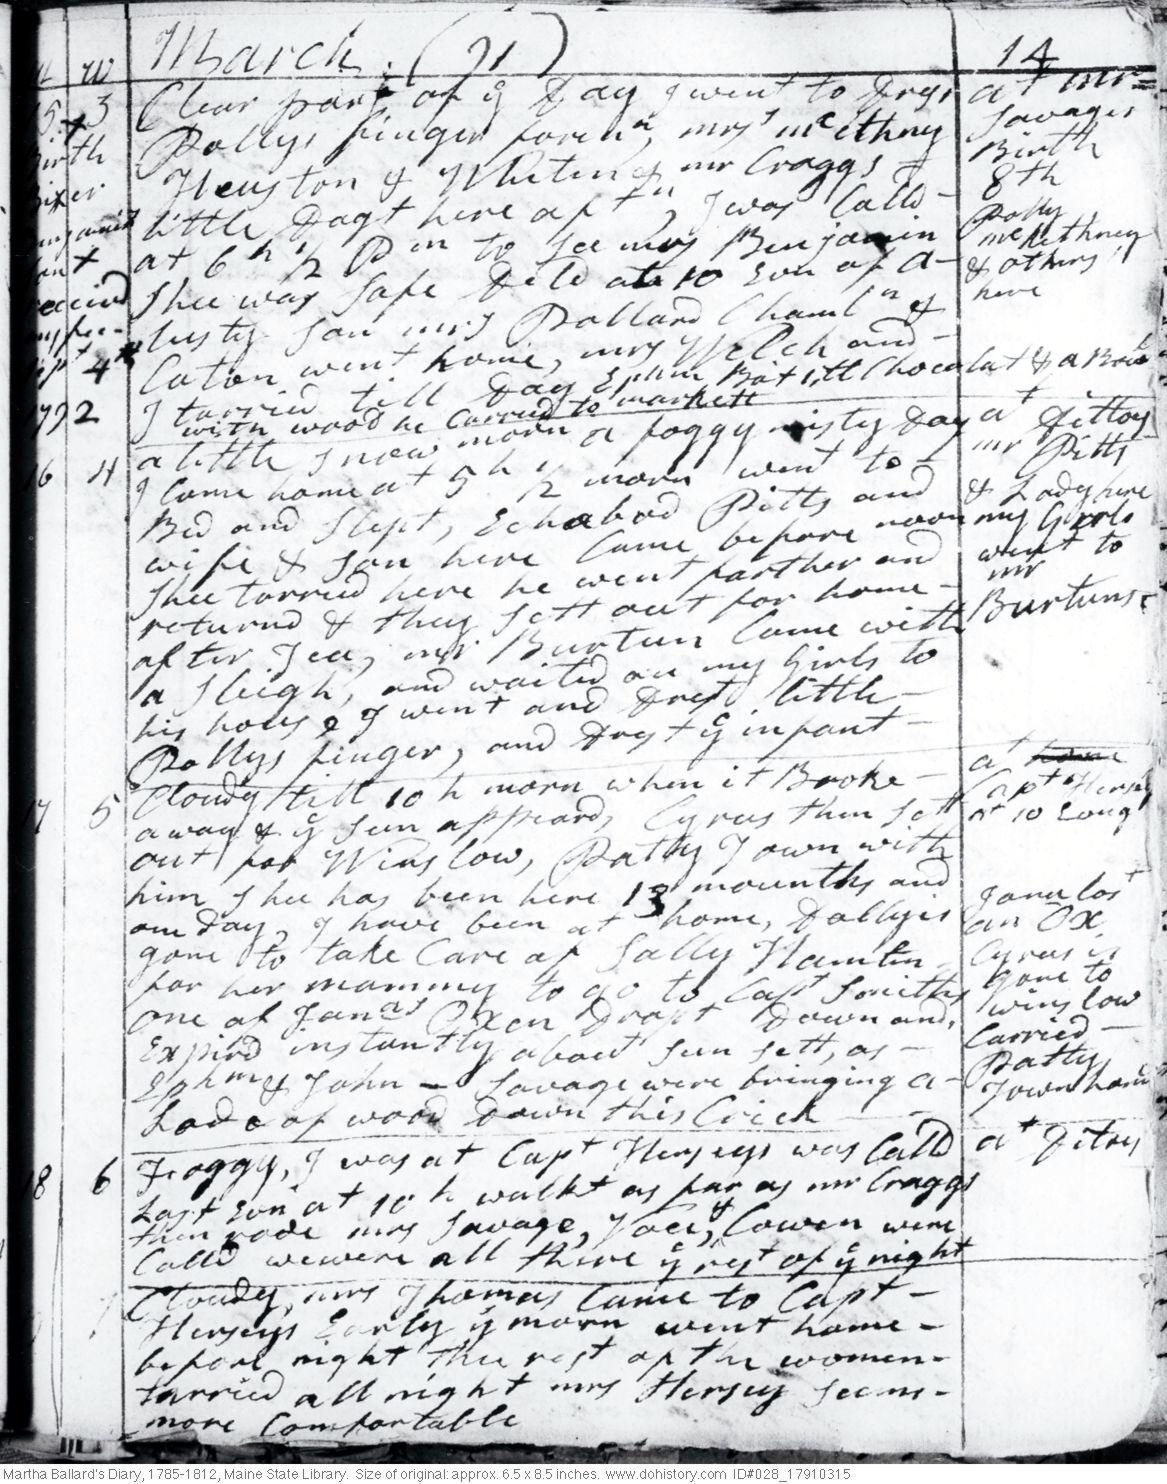 March. (91) 14
M W
15 3 Clear part of ÿ Day I went to Drest at mr
Pollys finger foren,, mrs mc ethny Savages
Birth Heuston & Whiten & mr Craggs Birth
Bixer little Dagt here aftn, I was Calld 8th
Benjamins at 6 h ½ Pm to See mrs Benjamin Polly
mc Kethney
shee was Safe Deld at 10 Evn of a & others
received lusty Son mrs Pollard Chamln & here
my fee
Sept 4th Caton went home, mrs Welch and
1792 I tarried till Day Ephm Bot 1 lb Chocolat & a Bowl
with wood he Carried to markett
16 4 a little Snow morn a foggy misty Day at Dittoes
I Came home at 5 h ½ morn went to mr Pitts
Bed and Slept, Echabod Pitts and & Lady here
wife & Son here Came before noon my Girls
shee tarried here he went farther and went to
mr
returnd & they Sett out for home Burtuns
after Tea, mr Burtun Came with
a Sleigh, and waited on my Girls to
his house I went and Drest little
Pollys finger, and Drest ÿ infant
17 5 Cloudy till 10 h morn when it Broke at home
away & ÿ Sun appeard, Cyrus then Sett Capt Herseys
at 10 Evng
out for Winslow, Patty Town with
him shee has been here 13 mounths and
one Day, I have been at home, Dolly is Jona lost
gone to take Care of Sally Hamlin an Ox
for her mammy to go to Capt Smiths Cyrus is
gone to
one of Jonas Oxen Dropt Down and, winslow
Expird instantly about Sun Sett, as Carried
Ephm & John Savage were bringing a Patty
Lode of wood Down this Crick Town home
18 6 Foggy, I was at Capt Herseys was Calld at Ditoes
Last Evn at 10 h walkt as far as mr Craggs
then rode mrs Savage, Vose, & Cowen were
Calld we were all there ÿ rest of ÿ night
Cloudy, mrs Thomas Came to Capt
Herseys Early ÿ morn went home
before night the rest of the women
tarried all night mrs Hersey Seems
more Comfortable
Martha Ballard's Diary, 1785-1812, Maine State Library. Size of original: approx. 6.5 x 8.5 inches. www.dohistory.com ID#028_17910315